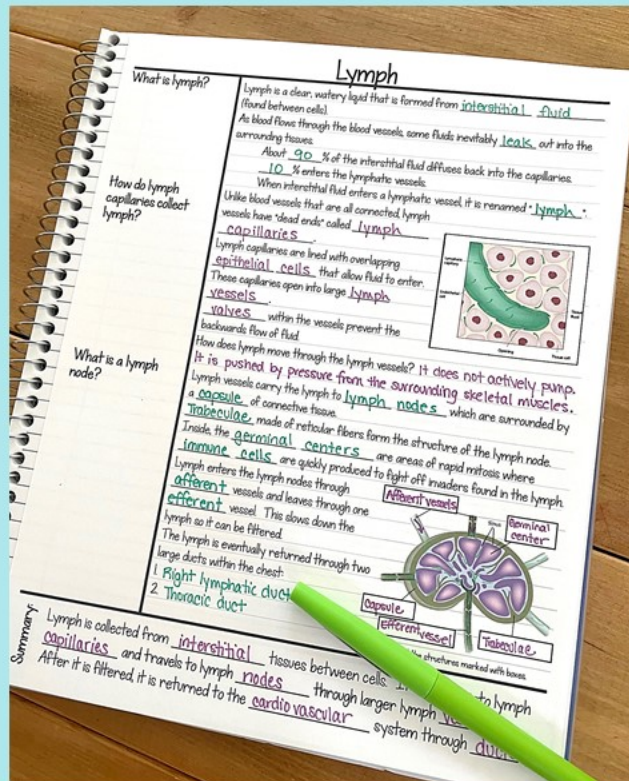 Lymph
What is lymph?
Lymph is a clear, watery liquid that is formed from interstitial fluid
(found between cells).
As blood flows through the blood vessels, some fluids inevitably leak out into the
surrounding tissues.
About 90 % of the interstitial fluid diffuses back into the capillaries.
10 % enters the lymphatic vessels.
When interstitial fluid enters a lymphatic vessel, it is renamed "lymph".
How do lymph
capillaries collect
lymph?
Unlike blood vessels that are all connected, lymph
vessels have "dead ends" called lymph
capillaries.
Lymph capillaries are lined with overlapping
epithelial cells that allow fluid to enter.
These capillaries open into large lymph
vessels.
valves within the vessels prevent the
backwards flow of fluid.
How does lymph move through the lymph vessels? It does not actively pump.
It is pushed by pressure from the surrounding skeletal muscles.
What is a lymph
node?
Lymph vessels carry the lymph to lymph nodes which are surrounded by
a capsule of connective tissue.
Trabeculae made of reticular fibers form the structure of the lymph node.
Inside, the germinal centers are areas of rapid mitosis where
immune cells are quickly produced to fight off invaders found in the lymph.
Lymph enters the lymph nodes through
afferent vessels and leaves through one
efferent vessel. This slows down the
lymph so it can be filtered.
The lymph is eventually returned through two
large ducts within the chest:
1. Right lymphatic duct
2. Thoracic duct
Afferent vessels
Sinus
Germinal
center
Capsule
Efferent vessel
Trabeculae
the structures marked with boxes
Summary:
Lymph is collected from interstitial tissues between cells. to lymph
capillaries and travels to lymph nodes through larger lymph
After it is filtered, it is returned to the cardiovascular system through duct